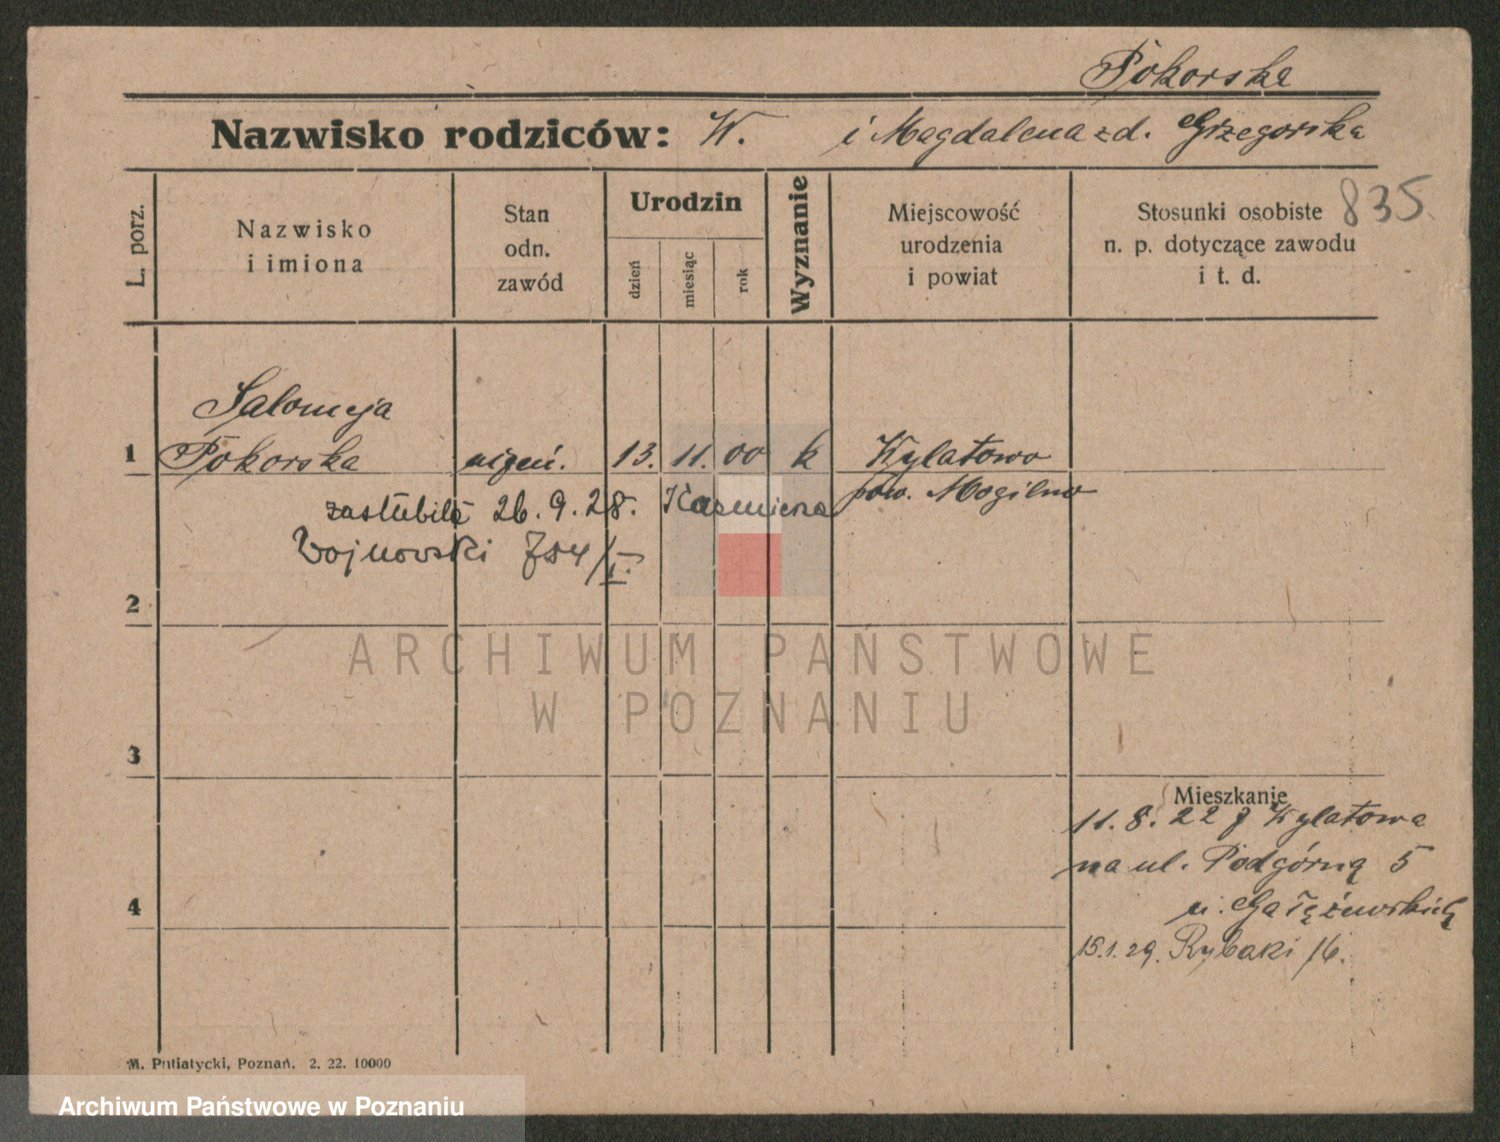 Pokorska
Nazwisko rodziców: W. i Magdalena zd. Grzegorska
835.
L. porz.
Nazwisko
i imiona
Stan
odn.
zawód
Urodzin
dzień
miesiąc
rok
Wyznanie
Miejscowość
urodzenia
i powiat
Stosunki osobiste
n. p. dotyczące zawodu
i t. d.
Salomeja
1 Pokorska niezam. 13. 11. 00 k Kylatowo
pow. Mogilno
zaslubiła 26. 9. 28. Kazmierza
Wojnowski 784/I.
2
3
4
Mieszkanie
11. 8. 22 z Kylatowa
na ul. Podgórną 5
u. Gałężewskich
15.1.29. Rybaki 16.
M. Putiatycki, Poznań. 2. 22. 10000
ARCHIWUM PAŃSTWOWE
W POZNANIU
Archiwum Państwowe w Poznaniu